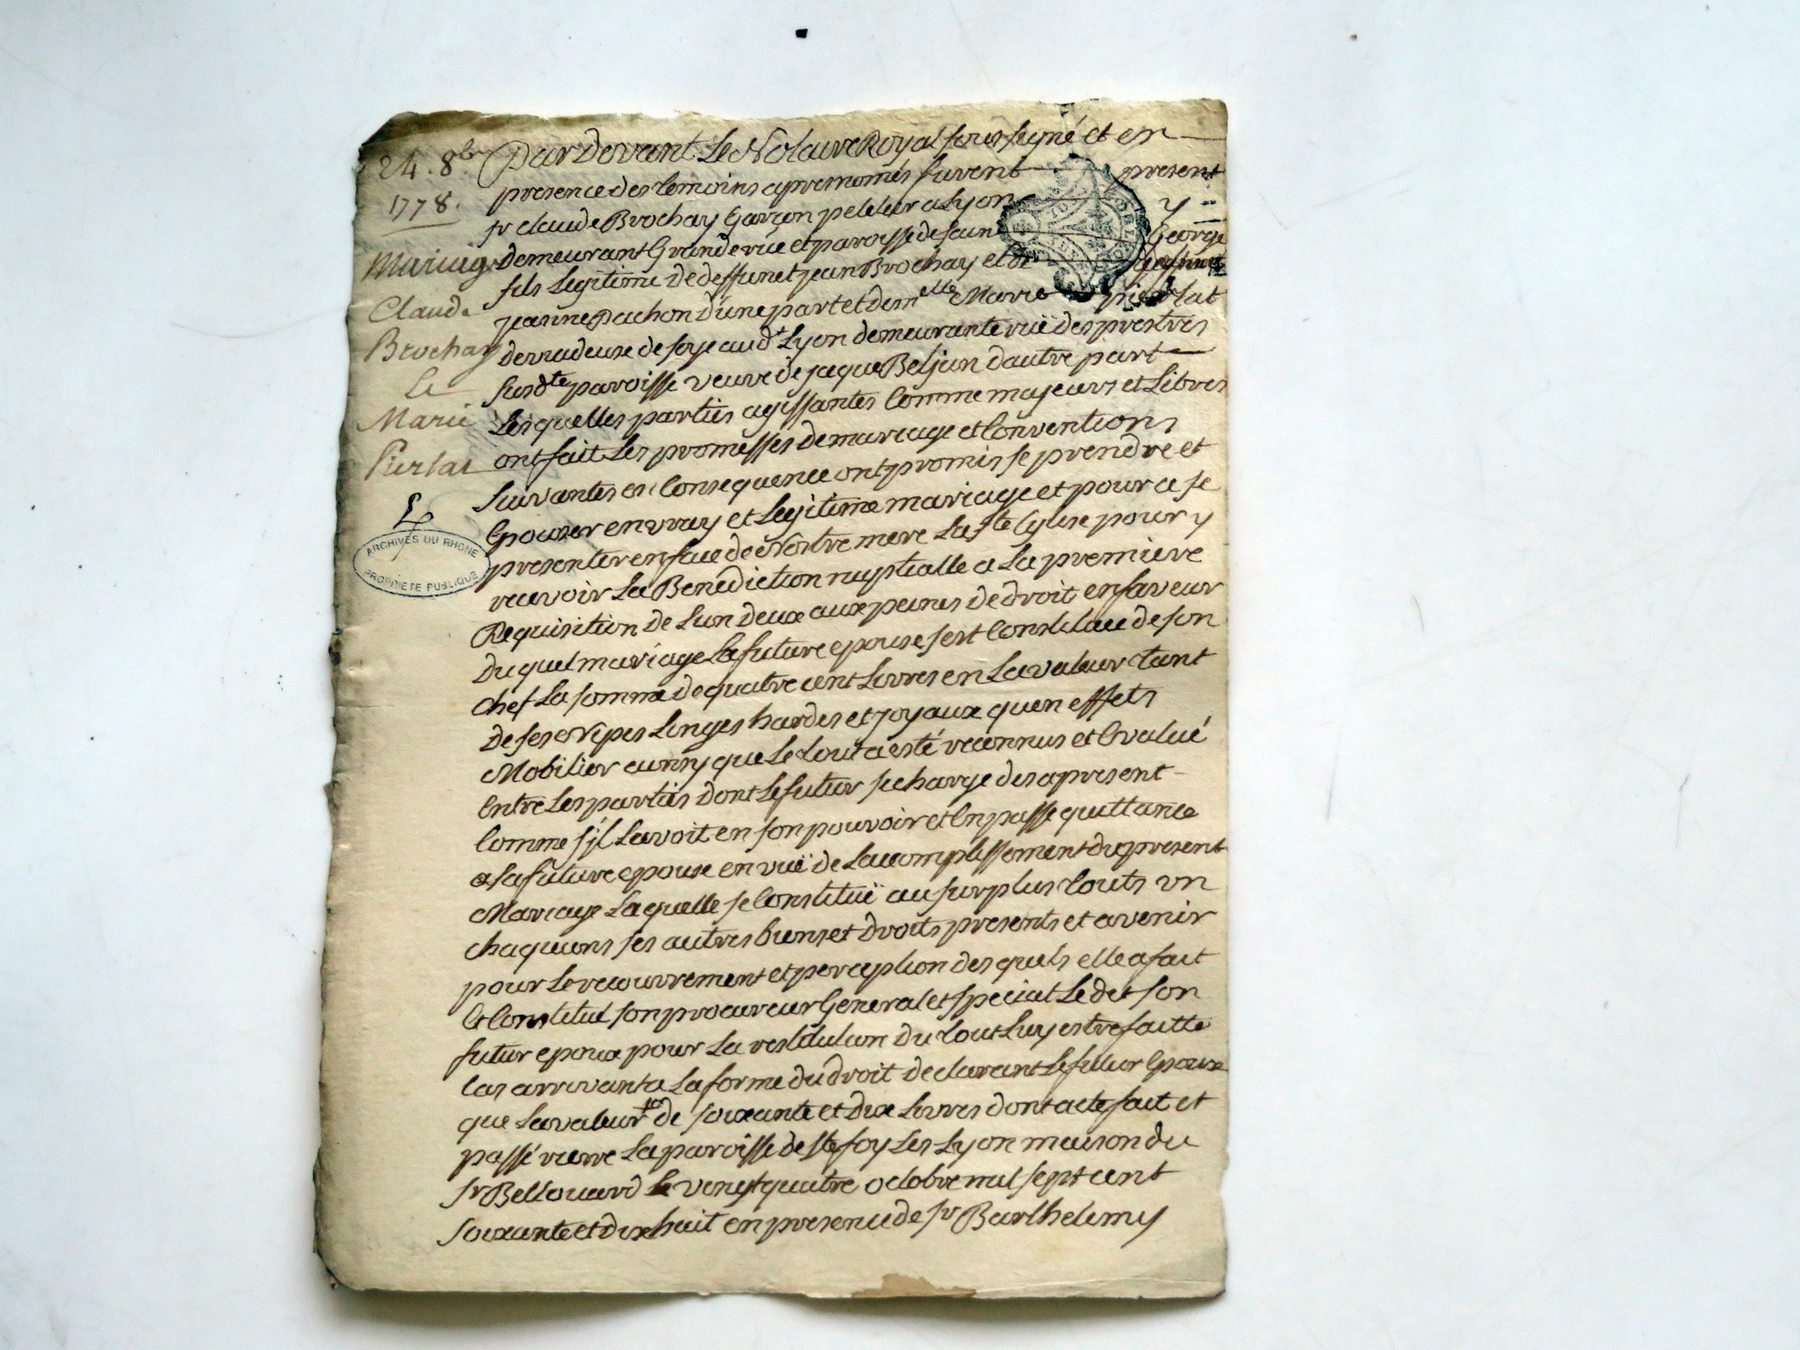 24. 8bre
1778.
Mariage
Claude
Brochay
Et
Marie
Pierlat
ARCHIVES DU RHONE
PROPRIETE PUBLIQUE
Par Devant Le Notaire Royal sous signé et en
presence des temoins apres només furent present
sr claude Brochay Garçon peleur a Lyon y
demeurant Grande rue et paroisse de saint George
fils Legitime de deffunct jean Brochay et de
jeanne Pachon d'une part et demelle Marie pierlat
devideuse de soye aud.t Lyon demeurante ruë des prestres
susdte paroisse veuve de jaque Beljan dautre part
Lesquelles parties agissantes Comme majeurs et Libres
ont fait Les promesses de mariage et Conventions
suivantes en Consequence ont promis se prendre et
Epouser en vray et Legitime mariage et pour ce se
presenter en face de Nostre mere La ste Eglise pour y
recevoir La Benediction nuptialle a La premiere
Requisition de Lun deux aux peines de droit en faveur
Du quel mariage La future epouse sest Constituee de son
chef La somme de quatre cent Livres en La valeur tant
de ses Nipes Linges hardes et joyaux quen effets
Mobilier ainsy que Le tout a esté reconnus et Evalué
Entre Les parties dont Le futur se charge des apresent
Comme s'jl Lavoit en son pouvoir et En passe quittance
a La future epouse en vuë de Lacomplissement du present
Mariage Laquelle se Constituë au surplus touts un
chaquuns ses autres biens et droits presents et avenir
pour Le recouvrement et perception des quels elle a fait
Et Constitué son procureur General et special Le dit son
futur epoux pour La restitution du tout Luy estre faitte
Cas arrivant a La forme du droit declarant Le futur Epoux
que La valeur de soixante et dix Livres dont acte fait et
passé riere La paroisse de Ste foy Les Lyon maison du
sr Bellouard Le vingt quatre octobre mil sept cent
soixante et dix huit en presence de sr Barthelemy